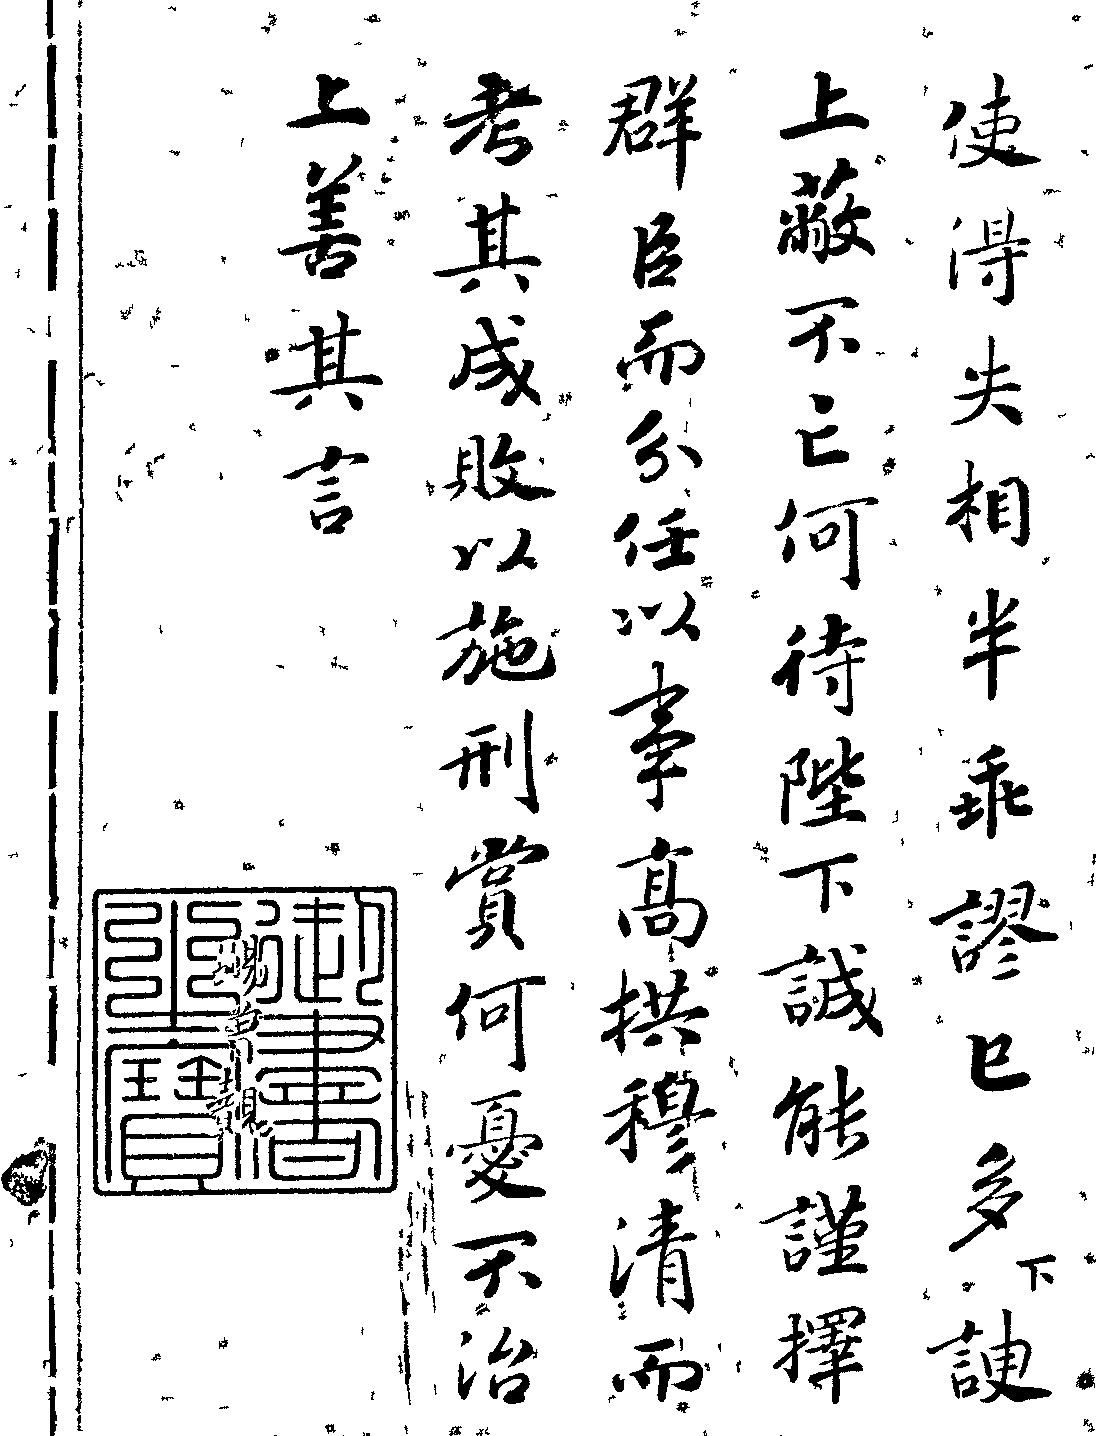 使得失相半乖謬已多下諛
上蔽不亡何待陛下誠能謹擇
群臣而分任以事高拱穆清而
考其成敗以施刑賞何憂不治
上善其言